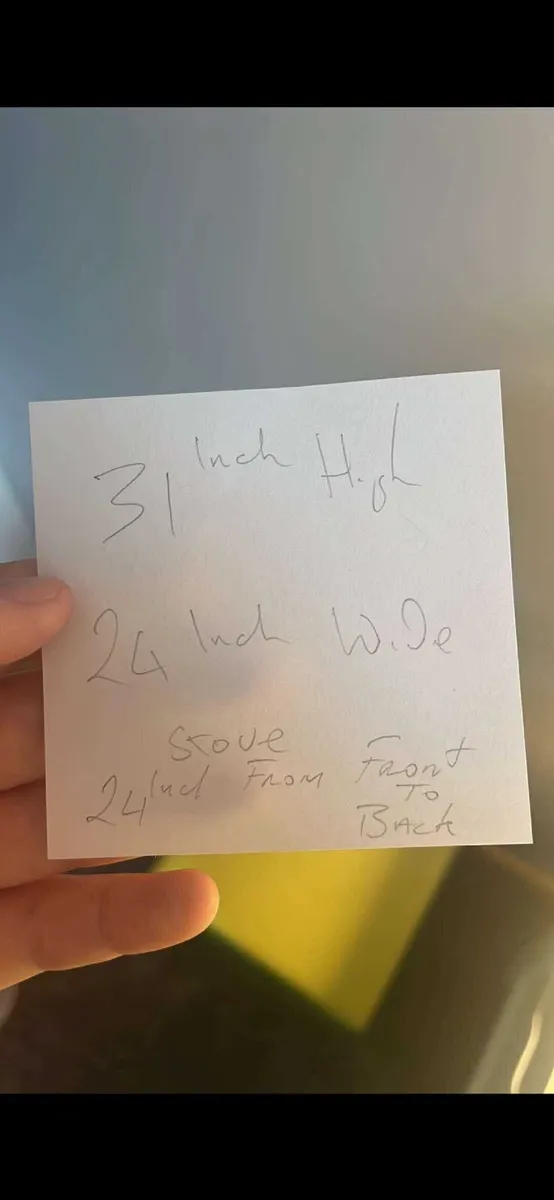 31 Inch High
24 Inch Wide
Stove
24 Inch From Front
To
Back